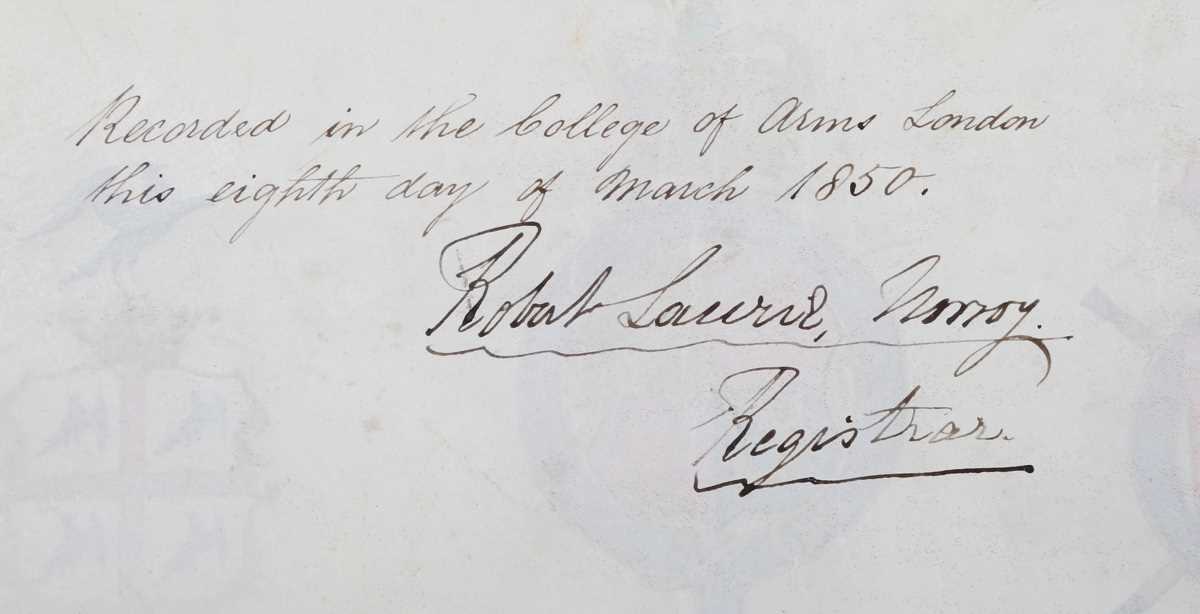 Recorded in the College of Arms London
this eighth day of March 1850.
Robert Laurie, Norroy.
Registrar.